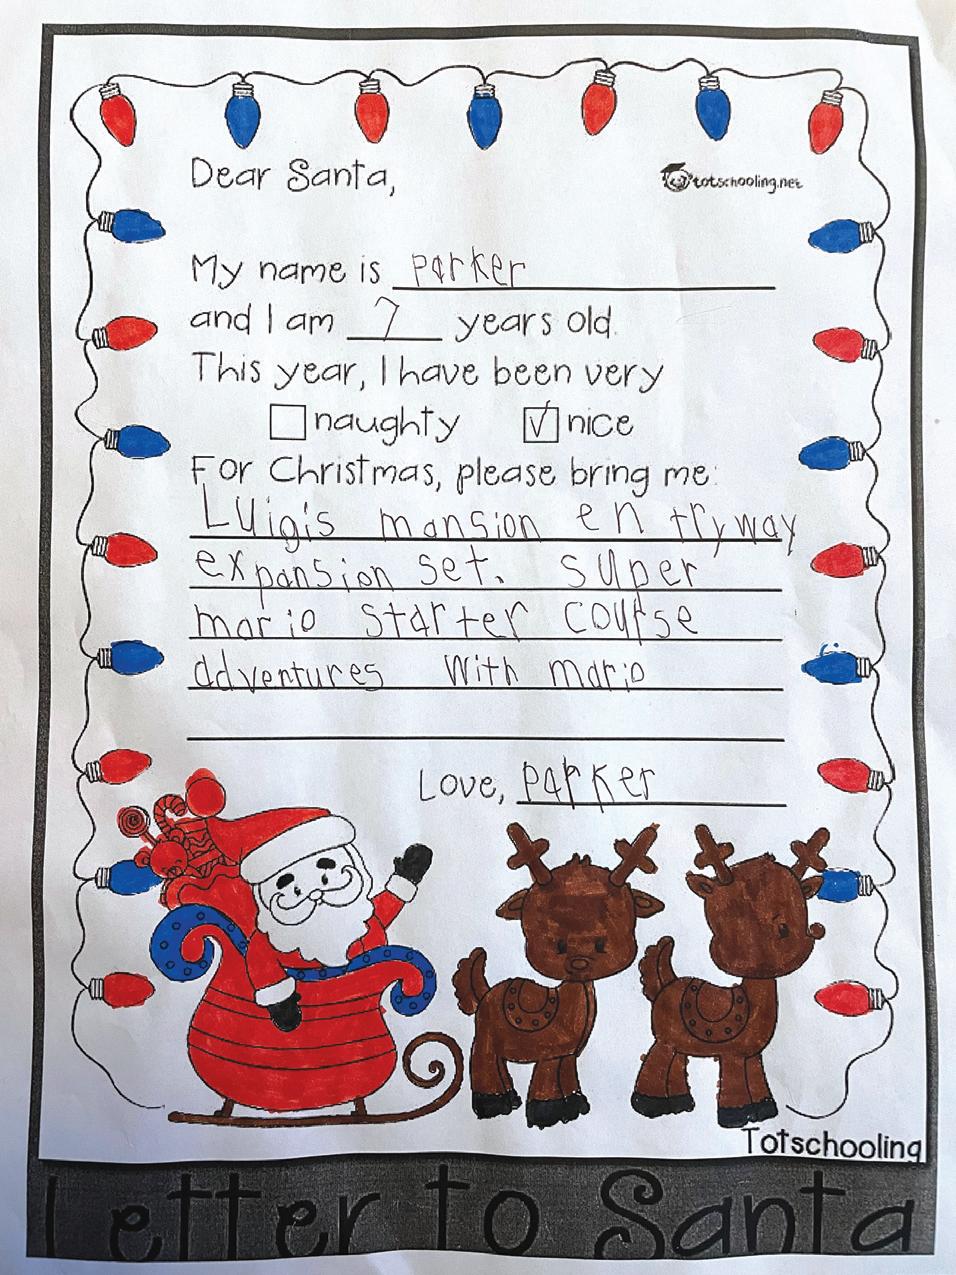 Dear Santa,
totschooling.net
My name is parker
and I am 7 years old.
This year, I have been very
naughty nice
For Christmas, please bring me:
Luigis mansion entryway
expansion set. super
mario starter course
adventures with mario
Love, parker
Totschooling
Letter to Santa